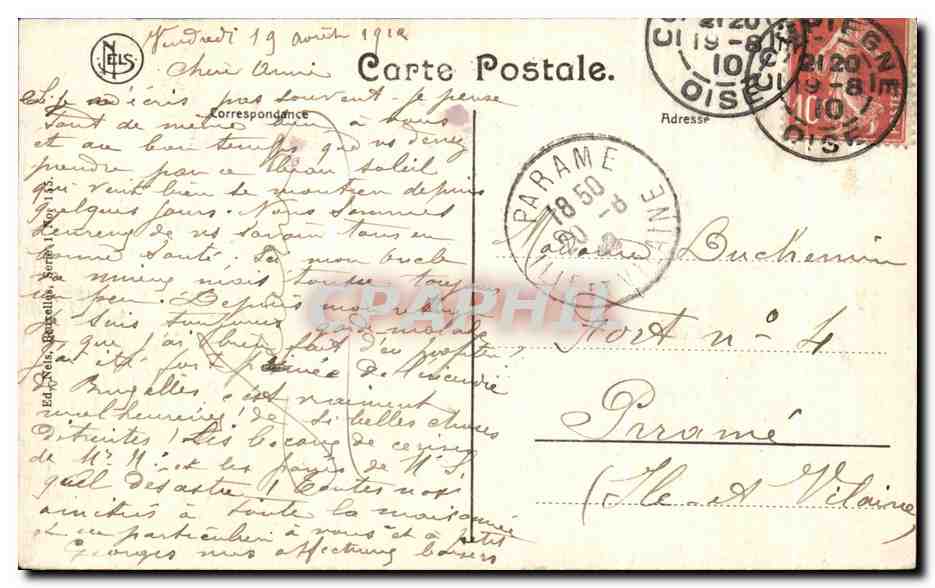 NELS
Vendredi 19 août 1910
Chère Annie
Carte Postale.
Correspondance
Adresse
m'écris pas souvent je pense
tout de même bien à vous
et au bon temps que vs devez
prendre par ce beau soleil
qui veut bien se montrer depuis
quelques jours. Nous sommes
heureux de vs savoir tous en
bonne santé. Ici mon oncle
va mieux mais tousse toujours
un peu. Depuis mon retour
je suis toujours garde malade
que j'ai bien fait d'en profiter,
j'ai été peinée de l'incendie
de Bruxelles, c'est vraiment
malheureux! de si belles choses
détruites!
de Mr et les de Mr
quel désastre! Toutes nos
amitiés à toute la maisonnée
et en particulier à vous et à petit
Georges mes affectueux baisers
Ed. Nels, Bruxelles, Serie 1, No. 155.
COMPIEGNE
21 20
19 -8
10
OISE
COMPIEGNE
21 20
19 -8
10
OISE
10
PARAME
18 50
20 -8
ILLE-ET-VILAINE
CPAPHIL
Madame Duchemin
Fort n° 4
Paramé
(Ile-et-Vilaine)